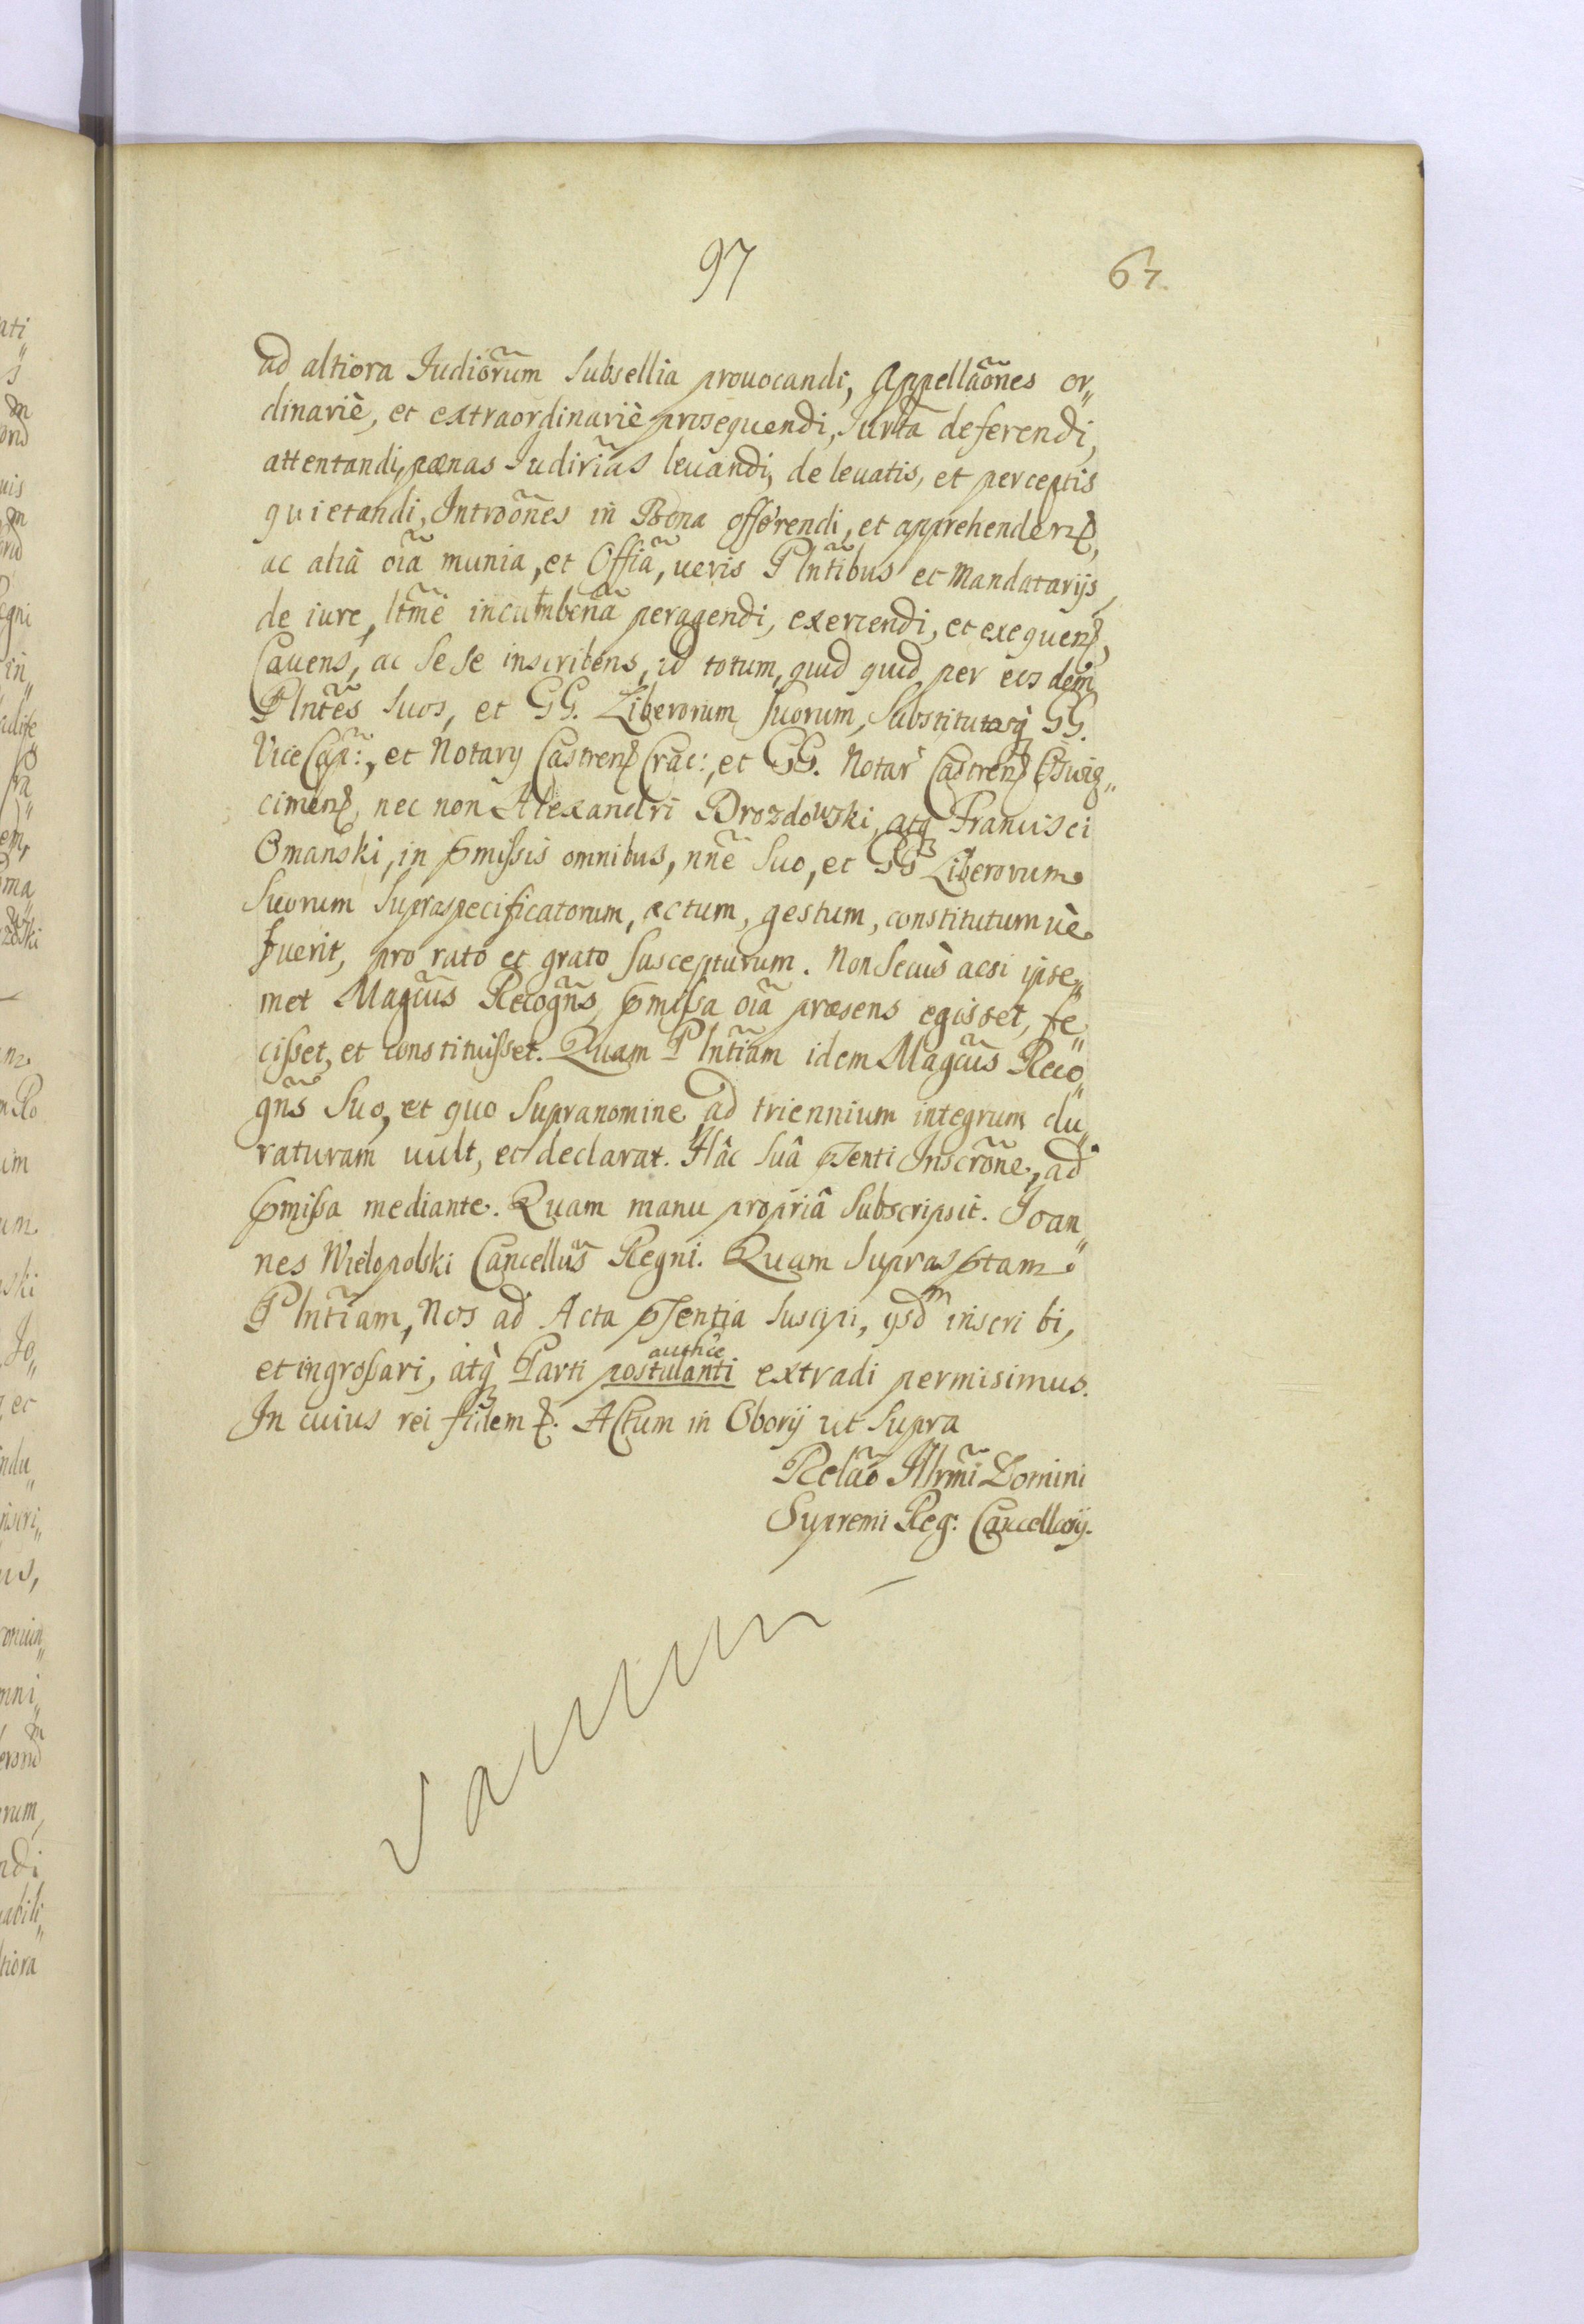 97
67.
ad altiora Judiõrum Subsellia prouocandi, Appellãones or„
dinariè, et extraordinariè prosequendi, Jurta deferendi,
attentandi, pænas Judirĩas leuandi, de leuatis, et perceptis
quietandi, Introõnes in Bona offerendi, et apprehenden₰,
ac alia oĩa munia, et Offiã, ueris Plntĩbus et Mandatarijs,
de iure, ltmẽ incumbenã peragendi, exercendi, et exequen₰,
Cauens, ac Se Se inscribens, id totum, quid quid per eosdem
Plntẽs Suos, et GG. Liberorum Suorum, Substitutosq̀ GG.
Vice Cap̃:, et Notarÿ Castren₰ Crac:, et GG. Notar Castren₰ Oswig„
cimen₰, nec non Alexandri Drozdowski, atq̀ Francisci
Omanski, in ꝑmissis omnibus, nñe Suo, et GG Liberorum
Suorum Supraspecificatorum, actum, gestum, constitutumuè
fuerit, pro rato et grato Suscepturum. Non Secus acsi ipse„
met Magcũs Recogñs, ꝑmissa oĩa præsens egisset, fe„
cisset, et constituisset. Quam Plntĩam idem Magcũs Reco„
gñs Suo, et quo Supra nomine, ad triennium integrum du„
raturam uult, et declarat. Hâc Suâ ꝑsenti Inscrõne, ad
ꝑmissa mediante. Quam manu propriâ Subscripsit. Joan„
nes Wielopolski Cancellũs Regni. Quam Suprasꝑtam
Plntĩam, Nos ad Acta ꝑsentia Suscipi, ÿsdᵐ inscribi,
authce
et ingrossari, atq̀ Parti postulanti extradi permisimus.
In cuius rei fidem ₰. Actum in Oborÿ ut Supra
Relão Illrmĩ Domini
Supremi Reg: Cancellarÿ.